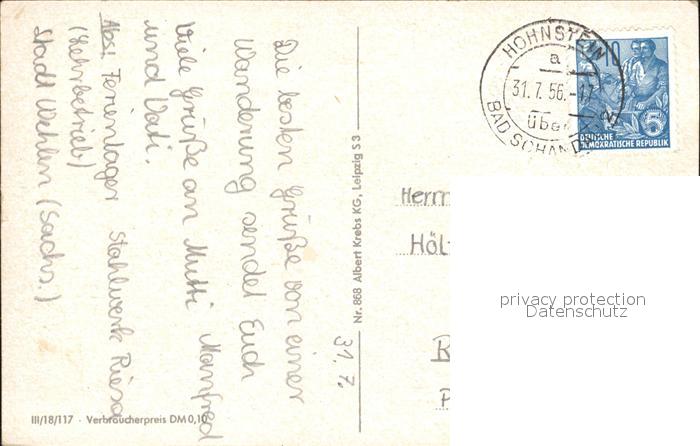 31.7.
Die besten Grüße von einer
Wanderung sendet Euch
Manfred
Viele Grüße an Mutti
und Vati.
Abs: Ferienlager Stahlwerk Riesa
(Lehrbetrieb)
Stadt Wehlen (Sachs.)
III/18/117 · Verbraucherpreis DM 0,10
Nr. 868 Albert Krebs KG, Leipzig S 3
HOHNSTEIN
a
31.7.56.-17
über
BAD SCHAND
10
5
DEUTSCHE
DEMOKRATISCHE REPUBLIK
Herrn
Höl
privacy protection
Datenschutz